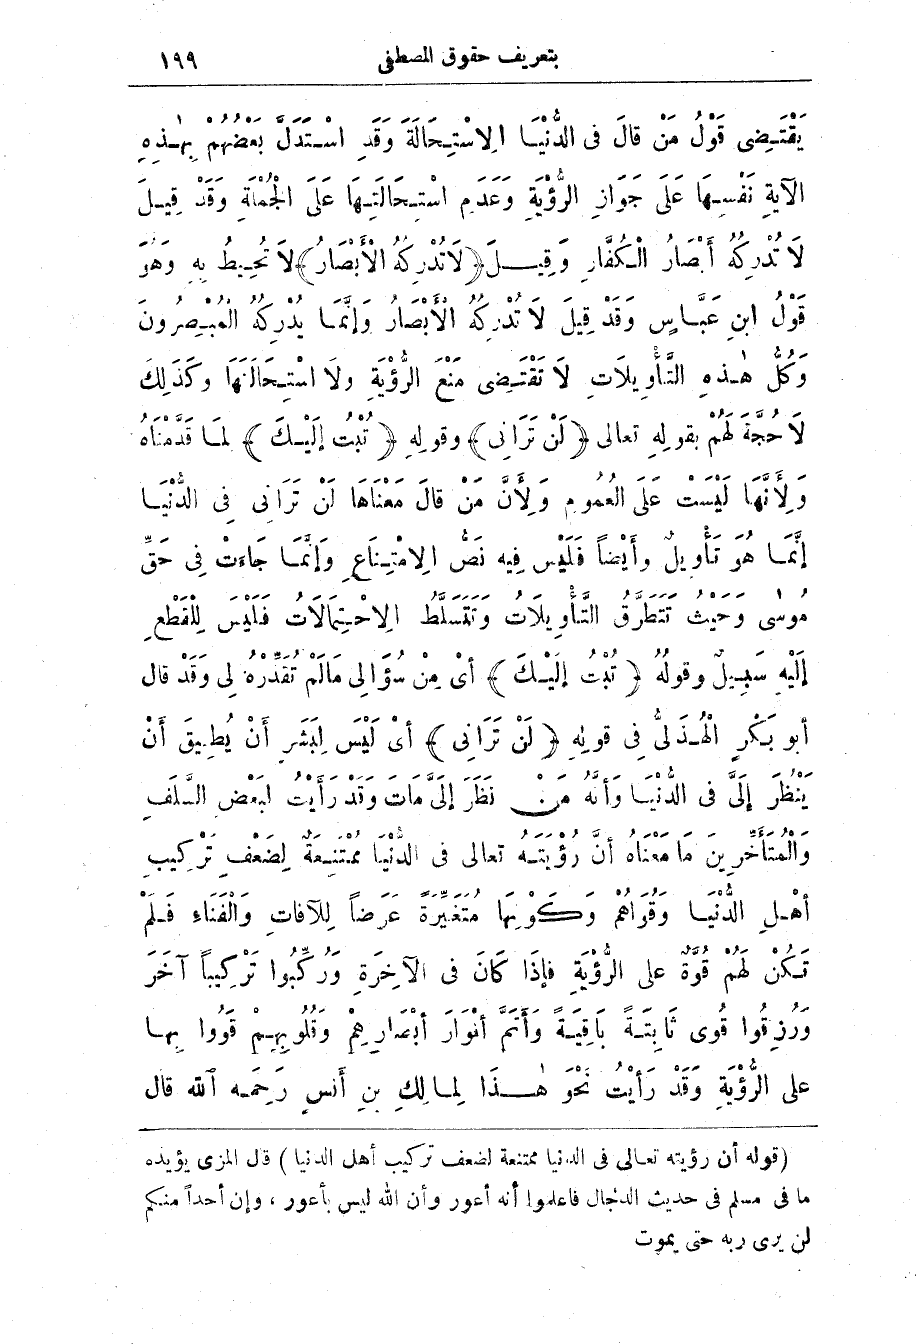 بتعريف حقوق المصطفى ١٩٩
يَقْتَضِى قَوْلُ مَنْ قَالَ فى الدُّنْيَا الِاسْتِحَالَةَ وَقَدِ اسْتَدَلَّ بَعْضُهُمْ بِهٰذِهِ
الآيَةِ نَفْسِهَا عَلَى جَوَازِ الرُّؤْيَةِ وَعَدَمِ اسْتِحَالَتِهَا عَلَى الْجُمْلَةِ وَقَدْ قِيلَ
لَا تُدْرِكُهُ أَبْصَارُ الْكُفَّارِ وَقِيلَ ﴿لَا تُدْرِكُهُ الْأَبْصَارُ﴾ لَا تُحِيطُ بِهِ وَهُوَ
قَوْلُ ابنِ عَبَّاسٍ وَقَدْ قِيلَ لَا تُدْرِكُهُ الْأَبْصَارُ وَإِنَّمَا يُدْرِكُهُ الْمُبْصِرُونَ
وَكُلُّ هٰذِهِ التَّأْوِيلَاتِ لَا تَقْتَضِى مَنْعَ الرُّؤْيَةِ ولَا اسْتِحَالَتَهَا وَكَذَلِكَ
لَا حُجَّةَ لَهُمْ بقولِهِ تعالى ﴿ لَنْ تَرَانِى ﴾ وقولِهِ ﴿ تُبْتُ إِلَيْكَ ﴾ لِمَا قَدَّمْنَاهُ
وَلِأَنَّهَا لَيْسَتْ عَلَى الْعُمُومِ وَلِأَنَّ مَنْ قالَ مَعْنَاهَا لَنْ تَرَانِى فِى الدُّنْيَا
إِنَّمَا هُوَ تَأْوِيلٌ وأَيْضاً فَلَيْسَ فِيهِ نَصُّ الِامْتِنَاعِ وَإِنَّمَا جَاءَتْ فِى حَقِّ
مُوسٰى وَحَيْثُ تَتَطَرَّقُ التَّأْوِيلَاتُ وَتَتَسَلَّطُ الِاحْتِمَالَاتُ فَلَيْسَ لِلْقَطْعِ
إِلَيْهِ سَبِيلٌ وقولُهُ ﴿ تُبْتُ إِلَيْكَ ﴾ أىْ مِنْ سُؤَالِى مَالَمْ تُقَدِّرْهُ لِى وَقَدْ قال
أبو بَكْرٍ الْهُذَلِىُّ فِى قولِهِ ﴿ لَنْ تَرَانِى ﴾ أىْ لَيْسَ لِبَشَرٍ أنْ يُطِيقَ أَنْ
يَنْظُرَ إِلَىَّ فى الدُّنْيَا وَأَنَّهُ مَنْ نَظَرَ إِلَىَّ مَاتَ وَقَدْ رَأَيْتُ لِبَعْضِ السَّلَفِ
وَالْمُتَأَخِّرِينَ مَا مَعْنَاهُ أَنَّ رُؤْيَتَهُ تعالى فى الدُّنْيَا مُمْتَنِعَةٌ لِضَعْفِ تَرْكِيبِ
أَهْلِ الدُّنْيَا وَقُوَاهُمْ وَكَوْنِهَا مُتَغَيِّرَةً عَرَضاً لِلآفاتِ وَالْفَنَاءِ فَلَمْ
تَكُنْ لَهُمْ قُوَّةٌ على الرُّؤْيَةِ فإِذَا كَانَ فى الآخِرَةِ وَرُكِّبُوا تَرْكِيباً آخَرَ
وَرُزِقُوا قُوى ثَابِتَةً بَاقِيَةً وَأَتَمَّ أنْوَارَ أبْصَارِهِمْ وَقُلُوبِهِمْ قَوُوا بِهَا
على الرُّؤْيَةِ وَقَدْ رَأَيْتُ نَحْوَ هٰذَا لِمالِكِ بنِ أَنَسٍ رَحِمَه اللهُ قال
(قوله أن رؤيته تعالى فى الدنيا ممتنعة لضعف تركيب أهل الدنيا) قال المزى يؤيده
ما فى مسلم فى حديث الدجال فاعلموا أنه أعور وأن الله ليس بأعور ، وإن أحداً منكم
لن يرى ربه حتى يموت